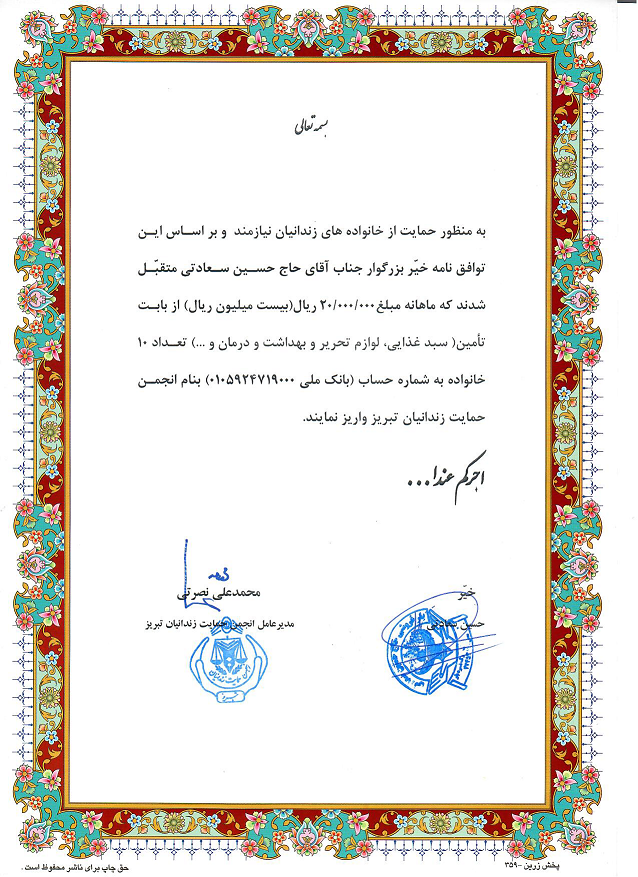 بسمه تعالی
به منظور حمایت از خانواده های زندانیان نیازمند و بر اساس این
توافق نامه خیّر بزرگوار جناب آقای حاج حسین سعادتی متقبّل
شدند که ماهانه مبلغ ۲۰/۰۰۰/۰۰۰ ریال(بیست میلیون ریال) از بابت
تأمین( سبد غذایی، لوازم تحریر و بهداشت و درمان و ...) تعداد ۱۰
خانواده به شماره حساب (بانک ملی ۰۱۰۵۹۲۴۷۱۹۰۰۰) بنام انجمن
حمایت زندانیان تبریز واریز نمایند.
اجرکم عندا...
خیّر
حسین سعادتی
محمدعلی نصرتی
مدیرعامل انجمن حمایت زندانیان تبریز
انجمن حمایت زندانیان
تبریز
پخش زرین -۳۵۹
حق چاپ برای ناشر محفوظ است .